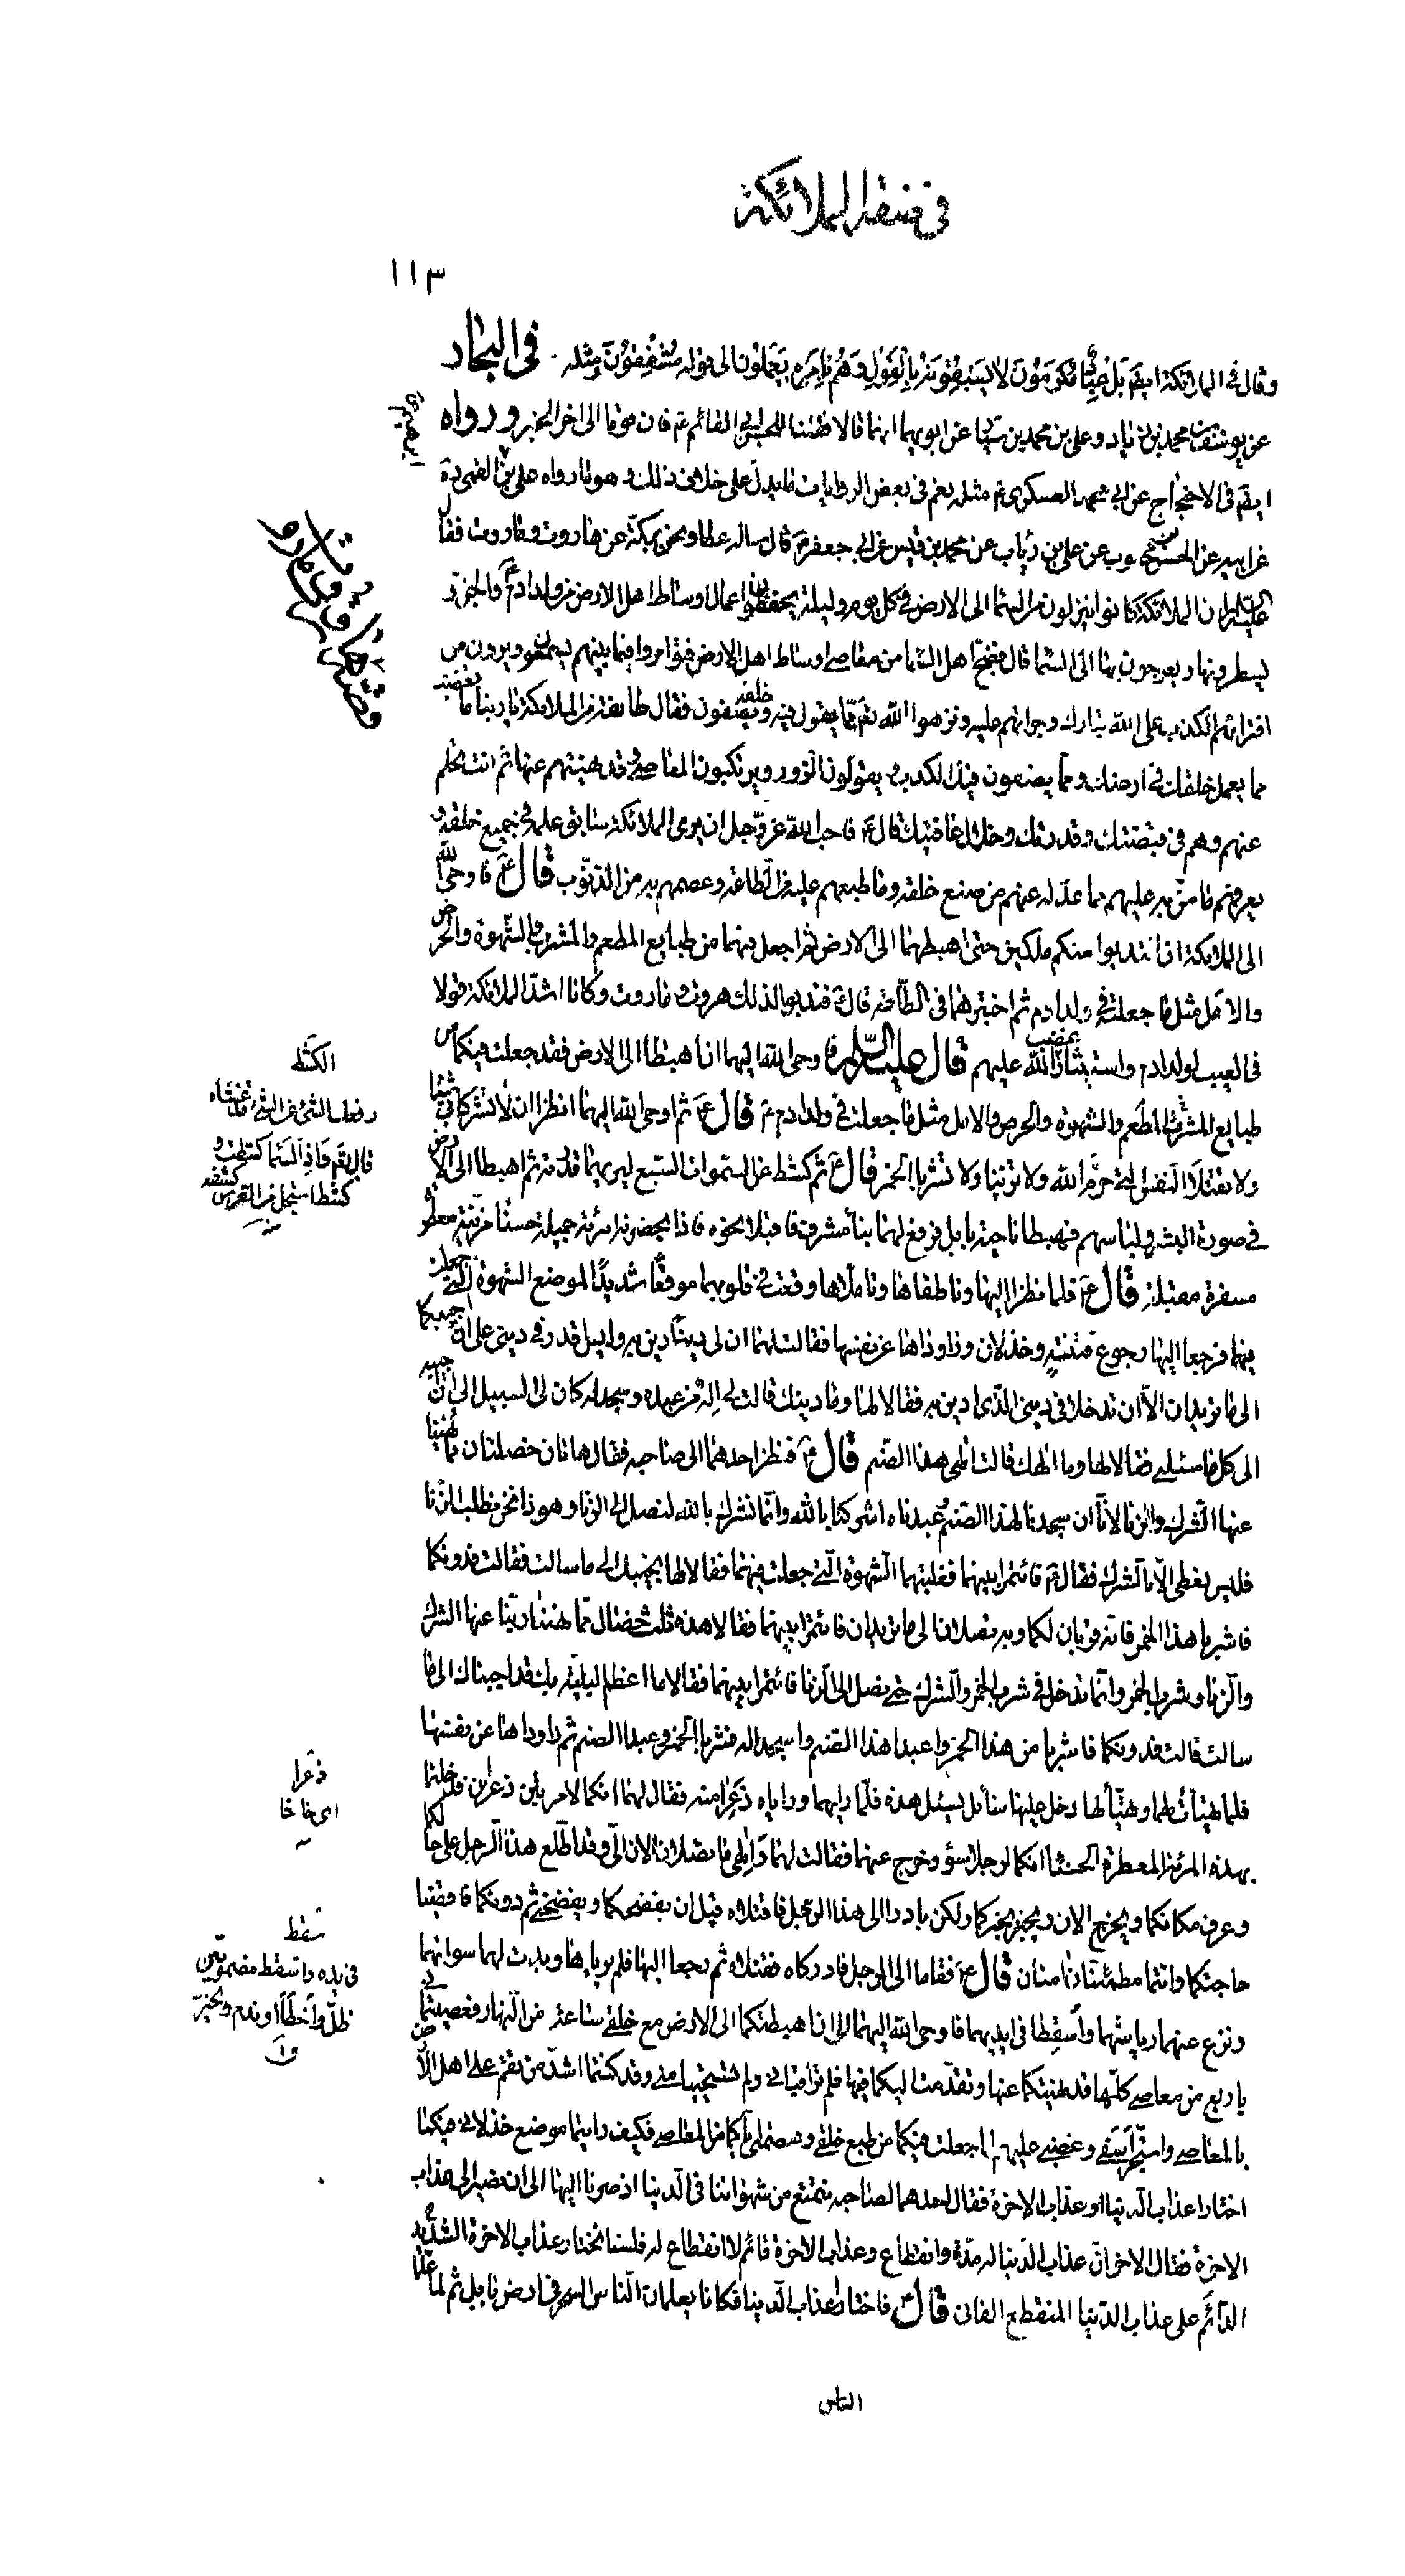 في صفة الملائكة
١١٣
وقال في الملائكة ايضم بَل عِبادٌ مُكرَمُونَ لا يَسبِقُونَهُ بِالقَولِ وَهُم بِاَمرِهِ يَعمَلُونَ الى قوله مُشفِقُونَ مثله . في البحار
عن يوسف بن محمد بن زياد وعلى بن محمد بن سيار عن ابويهما انهما قالا فقلنا للحسن ابي القائم ع فان قوما الى اخر الخبر ورواه
ايضم في الاحتجاج عن ابي محمد العسكرى ع مثله نعم في بعض الروايات ما يدل على خلاف ذلك وهو ما رواه على بن ابرهيم القمى ره
عن ابيه عن الحسن بن محبوب عن على بن رئاب عن محمد بن قيس عن ابي جعفر ع قال ساله عطا ونحن بمكة عن هاروت وماروت فقال
عليه السلام ان الملائكة كانوا ينزلون من السماء الى الارض في كل يوم وليلة يحفظون اعمال اوساط اهل الارض من ولد ادم والجن و
يسطرونها ويعرجون بها الى السماء قال فضج اهل السماء من معاصى اوساط اهل الارض فتوامروا فيما بينهم يسمعون ويرون من
افترائهم الكذب على الله تبارك وجراتهم عليه ونزهوا الله تعم مما يقول فيه خلقه ويصفون فقال طائفة من الملائكة يا ربنا ما تغضب
مما يعمل خلقك في ارضك ومما يصفون فيك الكذب و يقولون الزور ويرتكبون المعاصى وقد نهيتهم عنها ثم انت تحلم
عنهم وهم في قبضتك وقدرتك وخلال عافيتك قال ع فاحب الله عز وجل ان يرى الملائكة سابق علمه في جميع خلقه و
يعرفهم ما من به عليهم مما عدله عنهم من صنع خلقه وما طبعهم عليه من الطاعة وعصمهم به من الذنوب قال ع فاوحى الله
الى الملائكة ان انتدبوا منكم ملكين حتى اهبطهما الى الارض ثم اجعل فيهما من طبايع المطعم والمشرب والشهوة والحرص
والامل مثل ما جعلته في ولد ادم ثم اختبرهما في الطاعة قال ع فندبوا لذلك هروت وماروت وكانا اشد الملائكة قولا
في العيب لولد ادم واستيثار غضب الله عليهم قال عليه السلام فاوحى الله اليهما ان اهبطا الى الارض فقد جعلت فيكما من
طبايع المشرب والمطعم والشهوة والحرص والامل مثل ما جعلت في ولد ادم ع قال ع ثم اوحى الله اليهما انظرا ان لا تشركا بي شيئا
ولا تقتلا النفس التي حرم الله ولا تزنيا ولا تشربا الخمر قال ع ثم كشط عن السموات السبع ليريهما قدرته ثم اهبطا الى الارض
في صورة البشر ولباسهم فهبطا ناحية بابل فرفع لهما بناء مشرف فاقبلا نحوه فاذا بحضرته امرئة جميلة حسناء مزينة معطرة
مسفرة مقبلة قال ع فلما نظرا اليها وناطقاها وتاملاها وقعت في قلوبهما موقعا شديدا لموضع الشهوة التي جعلت
فيهما فرجعا اليها رجوع فتنة وخذلان وراوداها عن نفسها فقالت لهما ان لى دينا ادين به وليس اقدر في دينى على ان اجيبكما
الى ما تريدان الا ان تدخلا في دينى الذى ادين به فقالا لها وما دينك قالت لى اله من عبده وسجد له كان لى السبيل الى ان اجيبه
الى كل ما سئلنى فقالا لها وما الهك قالت الهى هذا الصنم قال ع فنظر احدهما الى صاحبه فقال هاتان خصلتان مما نهينا
عنها الشرك والزنا لانا ان سجدنا لهذا الصنم وعبدناه اشركنا بالله وانما نشرك بالله لنصل الى الزنا وهو ذا نحن نطلب الزنا
فليس نعطى الا بالشرك فقال ع فائتمرا بينهما فغلبتهما الشهوة التي جعلت فيهما فقالا لها نجيبك الى ما سالت فقالت فدونكما
فاشربا هذا الخمر فانه قربان لكما وبه تصلان الى ما تريدان فائتمرا بينهما فقالا هذه ثلث خصال مما نهانا ربنا عنها الشرك
والزنا وشرب الخمر وانما ندخل في شرب الخمر والشرك حتى نصل الى الزنا فائتمرا بينهما فقالا ما اعظم البلية بك قد اجبناك الى ما
سالت قالت فدونكما فاشربا من هذا الخمر واعبدا هذا الصنم واسجدا له فشربا الخمر وعبدا الصنم ثم راوداها عن نفسها
فلما تهيات لهما وتهيئا لها دخل عليها سائل يسئل هذه فلما رابهما وراياه ذعرا منه فقال لهما انكما لامرئين ذعران قد خلوتما
بهذه المرئة المعطرة الحسناء انكما لرجلا سوء وخرج عنهما فقالت لهما والهى ما تصلان الان الى وقد اطلع هذا الرجل على حالكما
وعرف مكانكما ويخرج الان ويخبر بخبركما ولكن بادرا الى هذا الرجل فاقتلاه قبل ان يفضحكما ويفضحنى ثم دونكما فاقضيا
حاجتكما وانتما مطمئنان امنان قال ع فقاما الى الرجل فادركاه فقتلاه ثم رجعا اليها فلم يرياها وبدت لهما سواتهما
ونزع عنهما رياشهما واُسقِطا في ايديهما فاوحى الله اليهما ان اهبطتكما الى الارض مع خلقى ساعة من النهار فعصيتمانى
باربع من معاصى كلها قد نهيتكما عنها وتقدمت اليكما فيها فلم تراقبانى ولم تستحييا منى وقد كنتما اشد من نقم على اهل الارض
بالمعاصى واستجر اسفى وغضبى عليهم لما جعلت فيكما من طبع خلقى وعصمتى اياكما من المعاصى فكيف رايتما موضع خذلانى فيكما
اختارا عذاب الدنيا او عذاب الاخرة فقال احدهما لصاحبه نتمتع من شهواتنا في الدنيا اذ صرنا اليها الى ان نصير الى عذاب
الاخرة فقال الاخر ان عذاب الدنيا له مدة وانقطاع وعذاب الاخرة قائم لا انقطاع له فلسنا نختار عذاب الاخرة الشديد
الدائم على عذاب الدنيا المنقطع الفانى قال ع فاختارا عذاب الدنيا فكانا يعلمان الناس السحر في ارض بابل ثم لما علما
الناس
قصة هاروت وماروت
الكشط
رفعك الشئ عن الشئ قد غشاه
قال تعم وَاِذَا السَّماءُ كُشِطَت و
كشط الجل عن الفرس كشفه
منه
ذعرا
اى خافا
سقط
في يده واسقط مضمومتين
ظل واخطا او ندم وتحير
ق